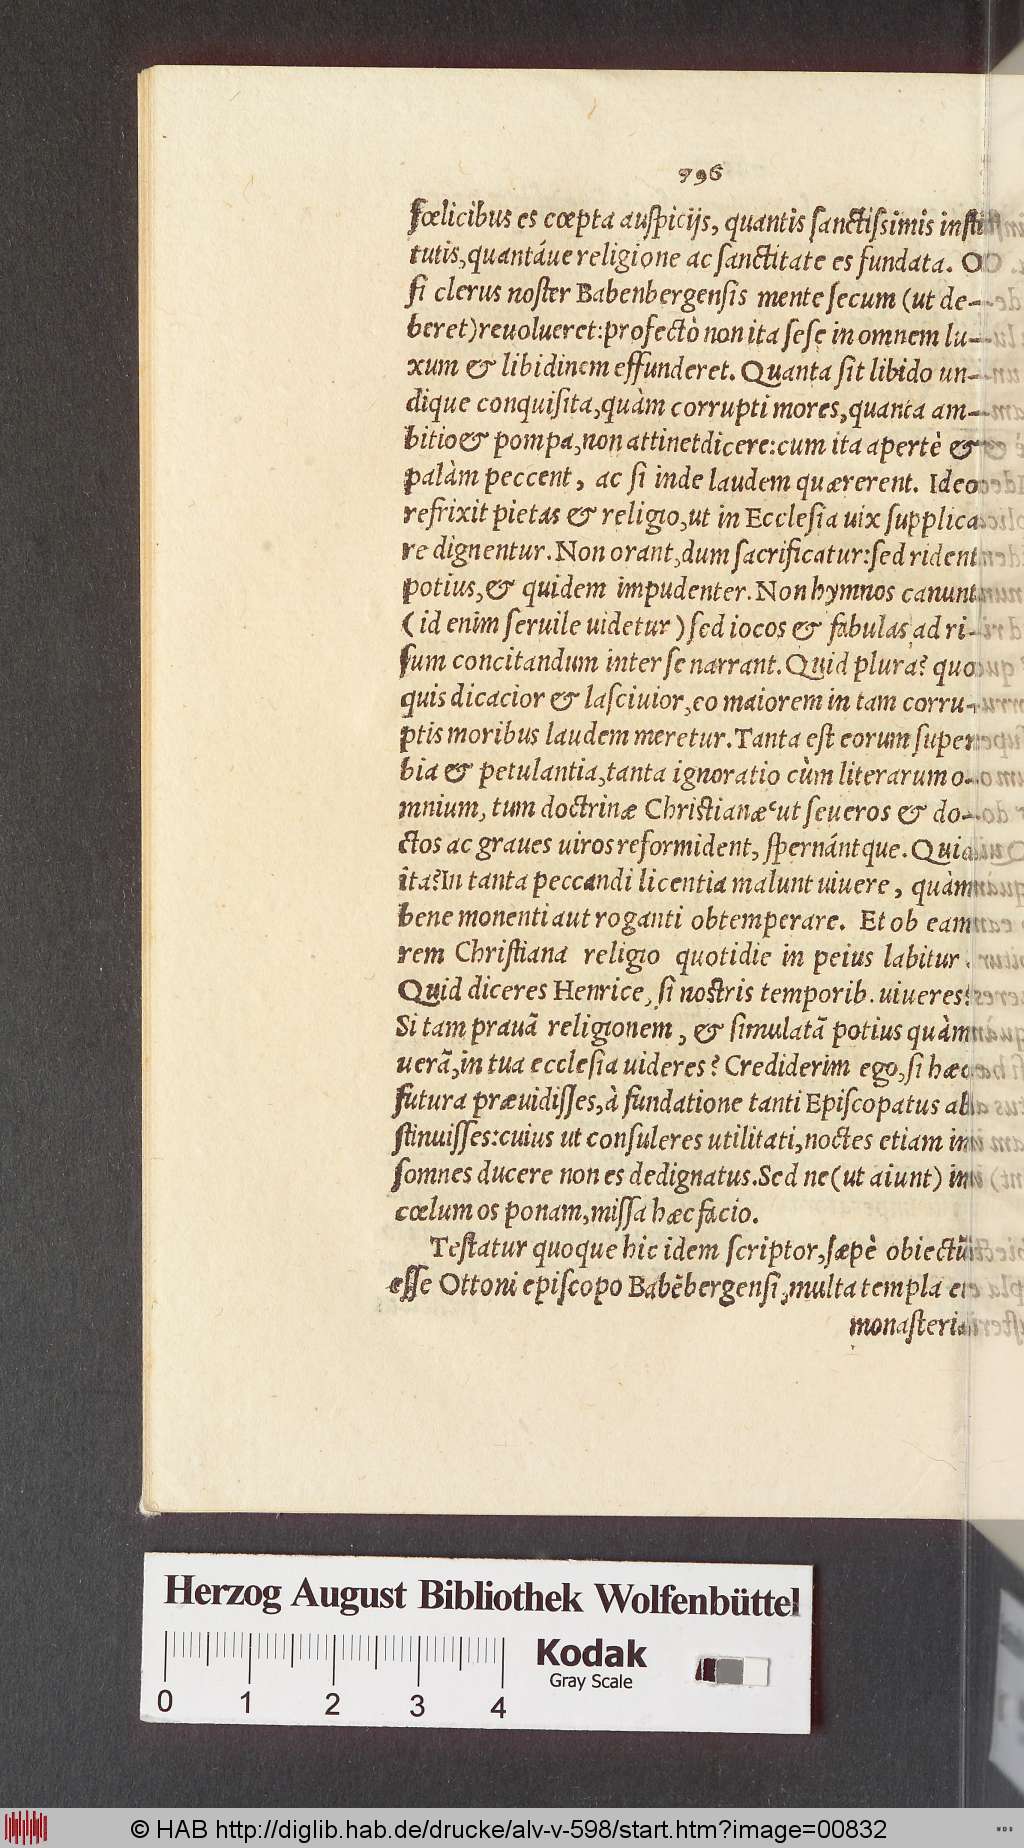 796
fœlicibus es cœpta auſpicijs, quantis ſanctiſsimis inſti
tutis, quantáue religione ac ſanctitate es fundata. O
ſi clerus noſter Babenbergenſis mente ſecum (ut de-
beret) reuolueret: profectò non ita ſeſe in omnem lu-
xum & libidinem effunderet. Quanta ſit libido un-
dique conquiſita, quàm corrupti mores, quanta am-
bitio & pompa, non attinet dicere: cum ita apertè &
palàm peccent, ac ſi inde laudem quærerent. Ideo
refrixit pietas & religio, ut in Eccleſia uix ſupplica
re dignentur. Non orant, dum ſacrificatur: ſed rident
potius, & quidem impudenter. Non hymnos canunt
(id enim ſeruile uidetur) ſed iocos & fabulas ad ri-
ſum concitandum inter ſe narrant. Quid plura? quo
quis dicacior & laſciuior, eo maiorem in tam corru-
ptis moribus laudem meretur. Tanta eſt eorum ſuper
bia & petulantia, tanta ignoratio cùm literarum o-
mnium, tum doctrinæ Chriſtianæ ut ſeueros & do-
ctos ac graues uiros reformident, ſpernántque. Quid
ita? In tanta peccandi licentia malunt uiuere, quàm
bene monenti aut roganti obtemperare. Et ob eam
rem Chriſtiana religio quotidie in peius labitur.
Quid diceres Henrice, ſi noſtris temporib. uiueres?
Si tam prauā religionem, & ſimulatā potius quàm
uerā, in tua eccleſia uideres? Crediderim ego, ſi hæc
futura præuidiſſes, à fundatione tanti Epiſcopatus ab
ſtinuiſſes: cuius ut conſuleres utilitati, noctes etiam in
ſomnes ducere non es dedignatus. Sed ne (ut aiunt) in
cœlum os ponam, miſſa hæc facio.
Teſtatur quoque hic idem ſcriptor, ſæpè obiectū
eſſe Ottoni epiſcopo Babēbergenſi, multa templa et
monaſteria
Herzog August Bibliothek Wolfenbüttel
0 1 2 3 4
Kodak
Gray Scale
© HAB http://diglib.hab.de/drucke/alv-v-598/start.htm?image=00832